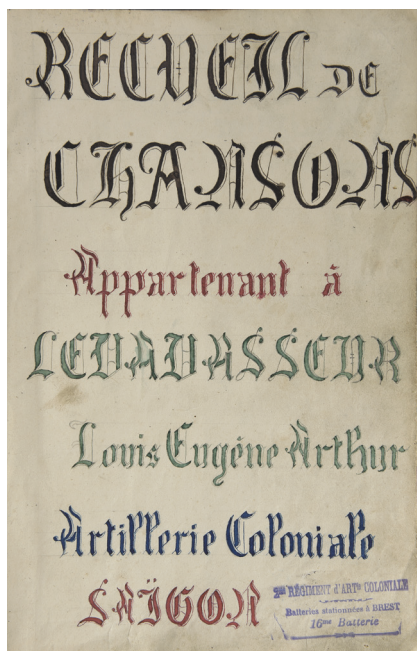 RECUEIL DE
CHANSONS
Appartenant à
LEVAVASSEUR
Louis Eugène Arthur
Artillerie Coloniale
SAÏGON
2e RÉGIMENT d'ARTie COLONIALE
Batteries stationnées à BREST
16me Batterie